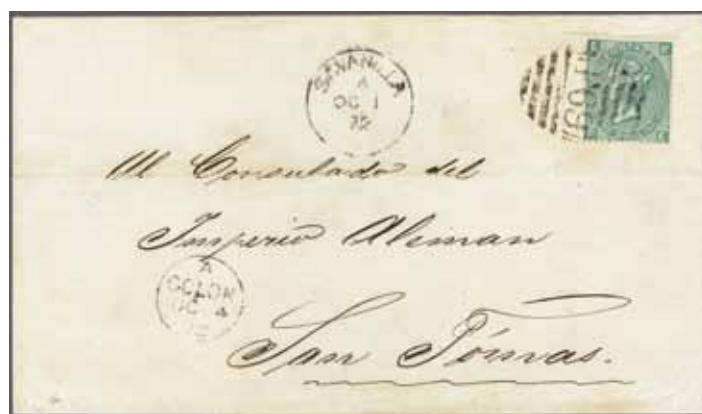 SAVANILLA
A
OC 1
72
Al Consulado del
Imperio Aleman
A
COLON
OC 4
San Tómas.